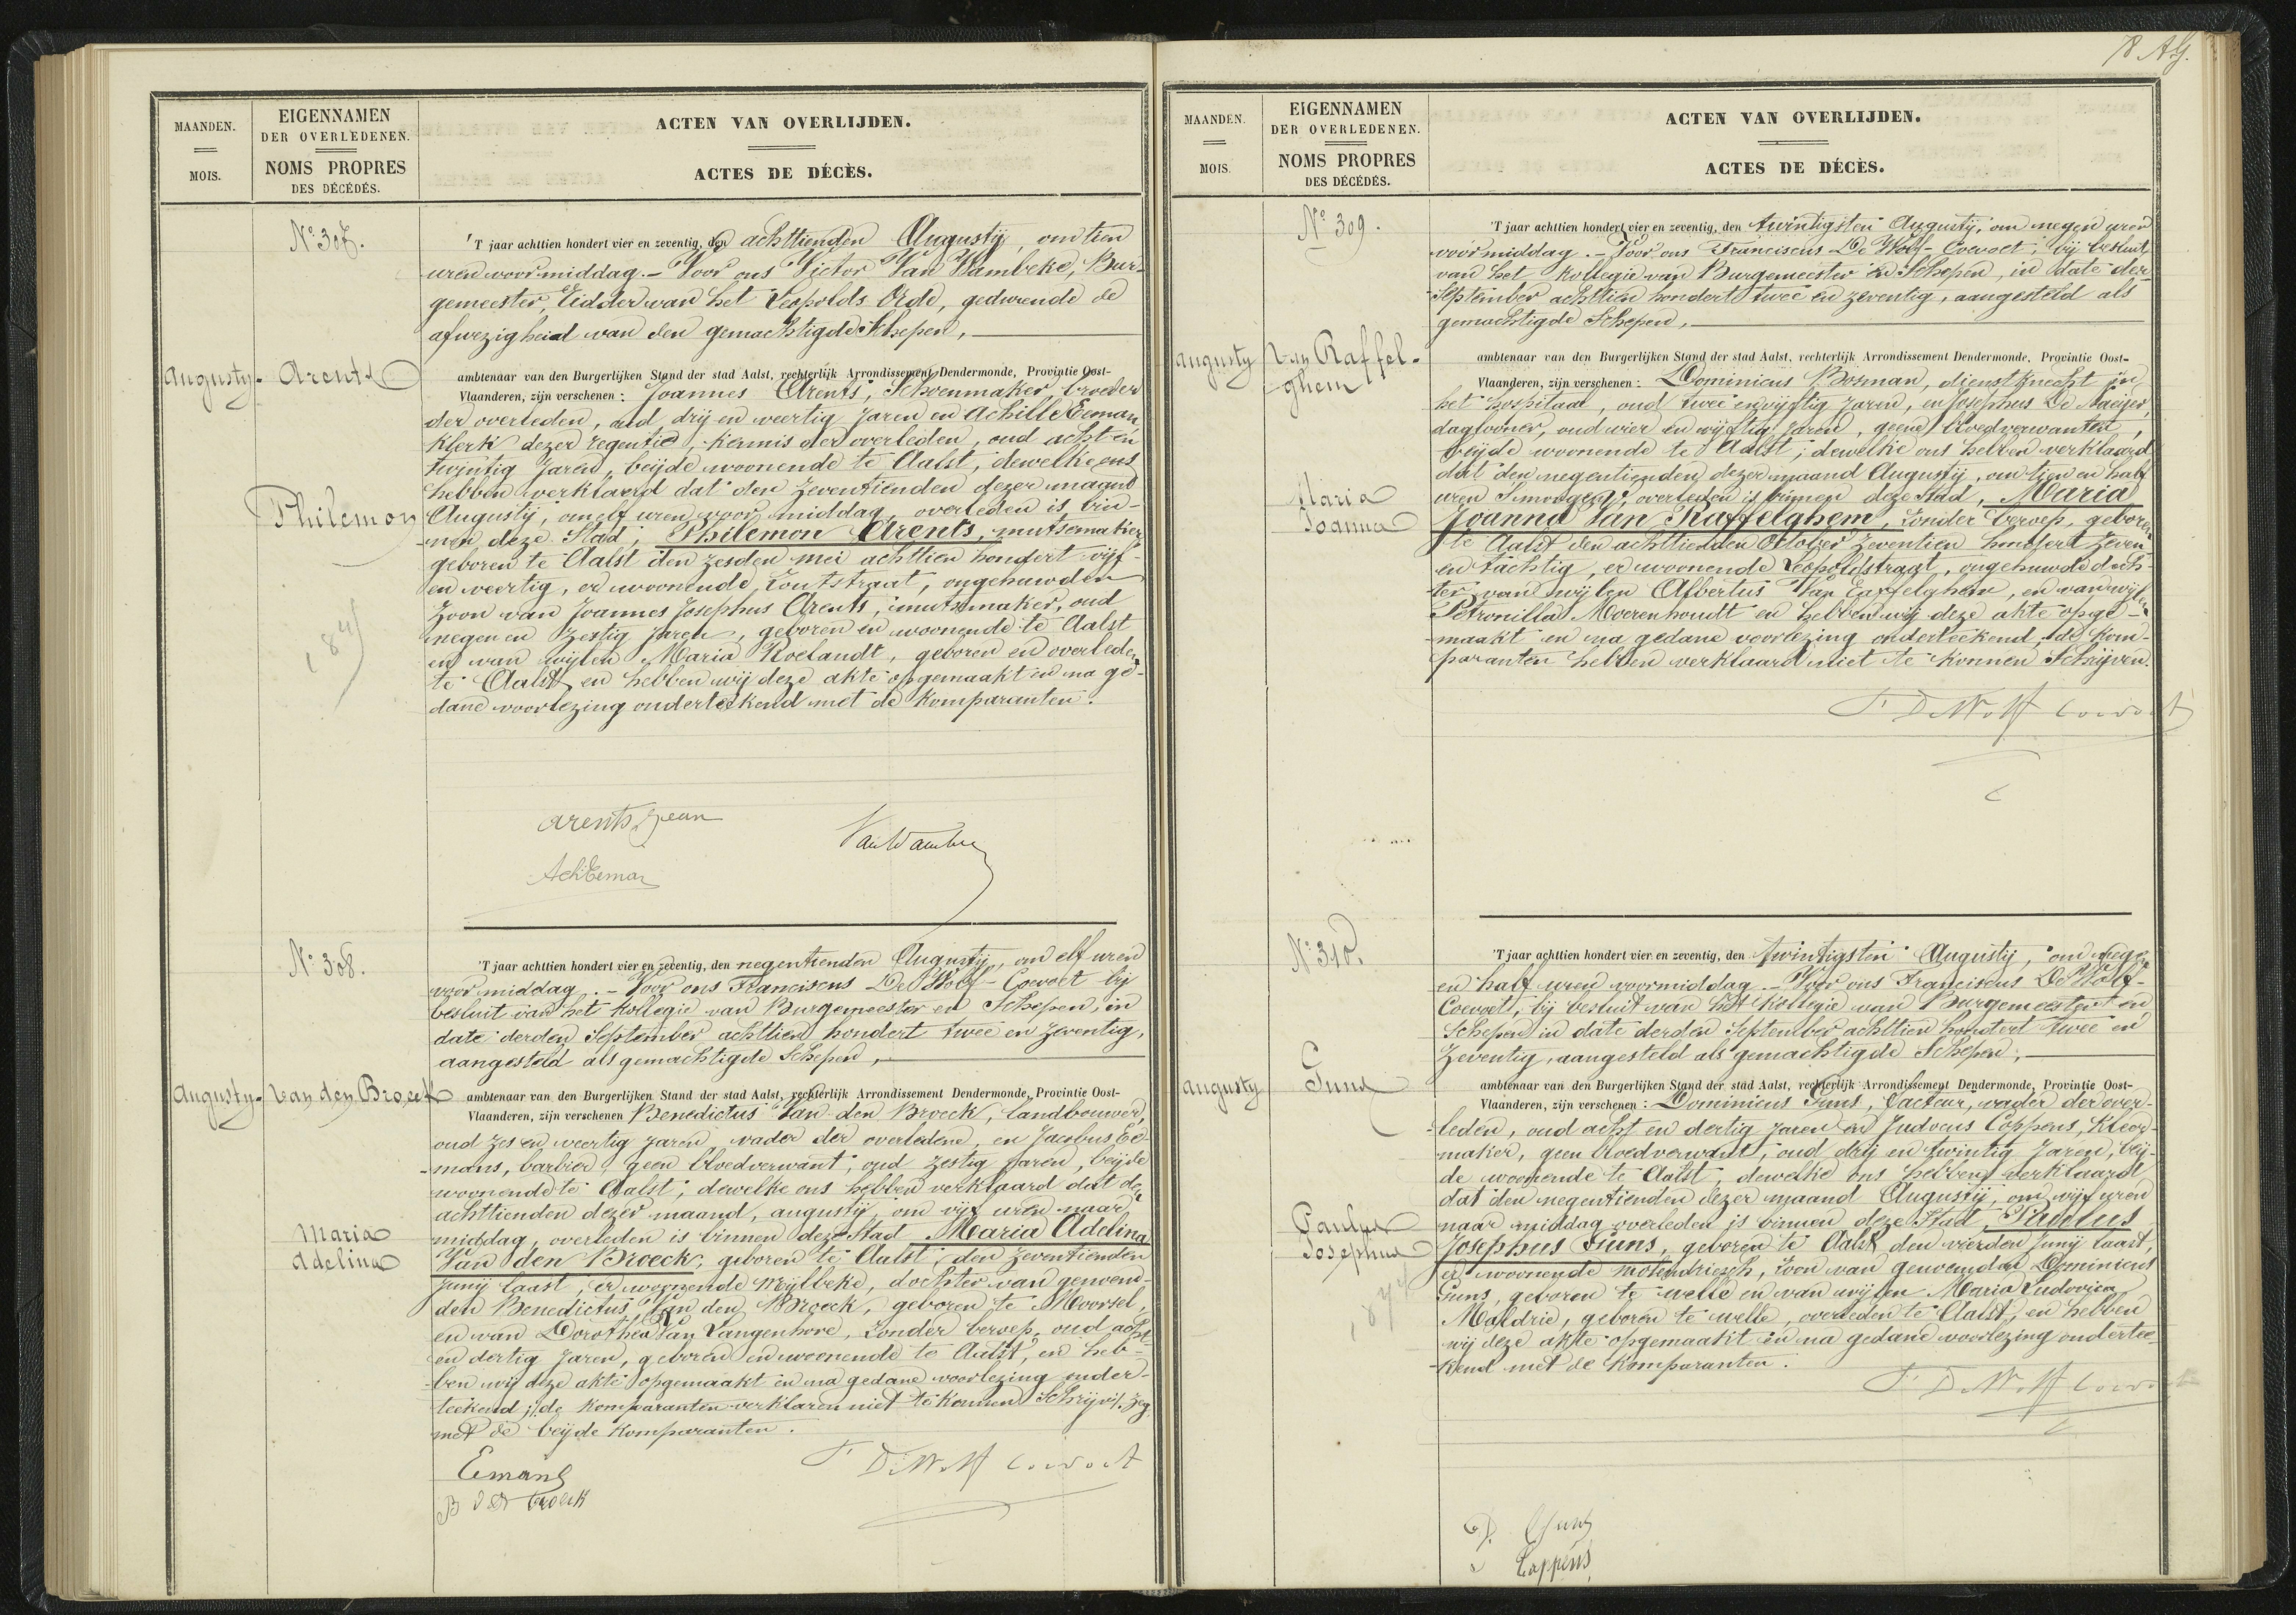 MAANDEN.
MOIS.
EIGENNAMEN
DER OVERLEDENEN.
NOMS PROPRES
DES DÉCÉDÉS.
ACTEN VAN OVERLIJDEN.
ACTES DE DÉCÈS.
No. 307.
'T jaar achttien hondert vier en zeventig, den achttienden Augustij, om tien
uren voormiddag. - Voor ons Victor Van Wambeke, Bur-
gemeester, Ridder van het Leopolds Orde, gedurende de
afwezigheid van den gemachtigde Schepen,
Augusty. Arents
ambtenaar van den Burgerlijken Stand der stad Aalst, rechterlijk Arrondissement Dendermonde, Provintie Oost-
Vlaanderen, zijn verschenen : Joannes Arents, Schoenmaker, broeder
der overleden, oud drij en veertig jaren en Achille Eeman,
Klerk dezer regentie, kennis der overleden, oud acht en
twintig jaren, beijde woonende te Aalst, dewelke ons
hebben verklaard dat den zeventienden dezer maand
Philemon
Augustij, om elf uren voor middag, overleden is bin-
nen deze Stad, Philemon Arents, mutsemaker
geboren te Aalst den zesden mei achttien hondert vijf-
en veertig, er woonende Zoutstraat, ongehuwden
zoon van Joannes Josephus Arents, mutsmaker, oud
negen en zestig jaren, geboren en woonende te Aalst
en van wijlen Maria Roelandt, geboren en overleden
te Aalst, en hebben wij deze akte opgemaakt en na ge-
dane voorlezing onderteekend met de komparanten.
arents jean
VanWambe
AchEeman
No. 308.
'T jaar achttien hondert vier en zeventig, den negentienden Augustij, om elf uren
voor middag. - Voor ons Franciscus De Wolf-Coevoet bij
besluit van het kollegie van Burgemeester en Schepen, in
date derden September achttien hondert twee en zeventig,
aangesteld als gemachtigde Schepen,
Augusty. Van den Broeck
ambtenaar van den Burgerlijken Stand der stad Aalst, rechterlijk Arrondissement Dendermonde, Provintie Oost-
Vlaanderen, zijn verschenen Benedictus Van den Broeck, landbouwer,
oud zes en veertig jaren, vader der overledene, en Jacobus Ee-
mans, barbier, geen bloedverwant, oud zestig jaren, beijde
woonende te Aalst, dewelke ons hebben verklaard dat den
achttienden dezer maand, augustij, om vijf uren naar
Maria
Adelina
middag, overleden is binnen deze Stad Maria Adelina
Van den Broeck, geboren te Aalst, den zeventienden
Junij laast, er woonende Meijlbeke, dochter van genoem-
den Benedictus Van den Broeck, geboren te Moorsel,
en van Dorothea Van Langenhove, zonder beroep, oud acht
en dertig jaren, geboren en woonende te Aalst, en heb-
ben wij deze akte opgemaakt en na gedane voorlezing onder-
teekend; de komparanten verklaren niet te konnen Schrijv. zeg
met de beijde komparanten.
Emans
F DeWolf Coevoet
B VD broeck
78 AG.
MAANDEN.
MOIS.
EIGENNAMEN
DER OVERLEDENEN.
NOMS PROPRES
DES DÉCÉDÉS.
ACTEN VAN OVERLIJDEN.
ACTES DE DÉCÈS.
No. 309.
'T jaar achttien hondert vier en zeventig, den twintigsten Augustij, om negen uren
voormiddag. - Voor ons Franciscus De Wolf-Coevoet, bij besluit
van het kollegie van Burgemeester en Schepen, in date der-
September achttien hondert twee en zeventig, aangesteld als
gemachtigde Schepen,
augusty Van Raffel-
ghem
ambtenaar van den Burgerlijken Stand der stad Aalst, rechterlijk Arrondissement Dendermonde, Provintie Oost-
Vlaanderen, zijn verschenen : Dominicus Bosman, dienstknecht in
het hospitaal, oud twee en vijftig jaren, en Josephus De Naeijer,
dagloner, oud vier en vijftig jaren, geene bloedverwanten,
beijde woonende te Aalst, dewelke ons hebben verklaard
dat den negentienden dezer maand Augustij, om tien en half
Maria
Joanna
uren 's morgens, overleden is binnen deze Stad, Maria
Joanna Van Raffelghem, zonder beroep, geboren
te Aalst den achttienden October zeventien hondert zeven
en tachtig, er woonende Leopoldstraat, ongehuwde doch-
ter van wijlen Albertus Van Raffelghem, en van wijlen
Petronilla Moerenhoudt en hebben wij deze akte opge-
maakt en na gedane voorlezing onderteekend, de kom-
paranten hebben verklaard niet te konnen Schrijven.
F DeWolf Coevoet
No. 310.
'T jaar achttien hondert vier en zeventig, den twintigsten Augustij, om negen
en half uren voormiddag. - Voor ons Franciscus De Wolf-
Coevoet, bij besluit van het kollegie van Burgemeester en
Schepen in date derden September achttien hondert twee en
zeventig, aangesteld als gemachtigde Schepen,
augusty Guns
ambtenaar van den Burgerlijken Stand der stad Aalst, rechterlijk Arrondissement Dendermonde, Provintie Oost-
Vlaanderen, zijn verschenen : Dominicus Guns, facteur, vader der over-
leden, oud acht en dertig jaren en Judocus Coppens, kleer-
maker, geen bloedverwant, oud drij en twintig jaren, bij-
de woonende te Aalst, dewelke ons hebben verklaard
dat den negentienden dezer maand Augustij, om vijf uren
Paulus
Josephus
naar middag overleden is binnen deze Stad, Paulus
Josephus Guns, geboren te Aalst den vierden Junij laast,
er woonende Molendriesch, zoon van genoemden Dominicus
Guns, geboren te Welle en van wijlen Maria Ludovica
Maldrie, geboren te Welle, overleden te Aalst, en hebben
wij deze akte opgemaakt en na gedane voorlezing ondertee-
kend met de komparanten.
F DeWolf Coevoet
D. Guns
Coppens